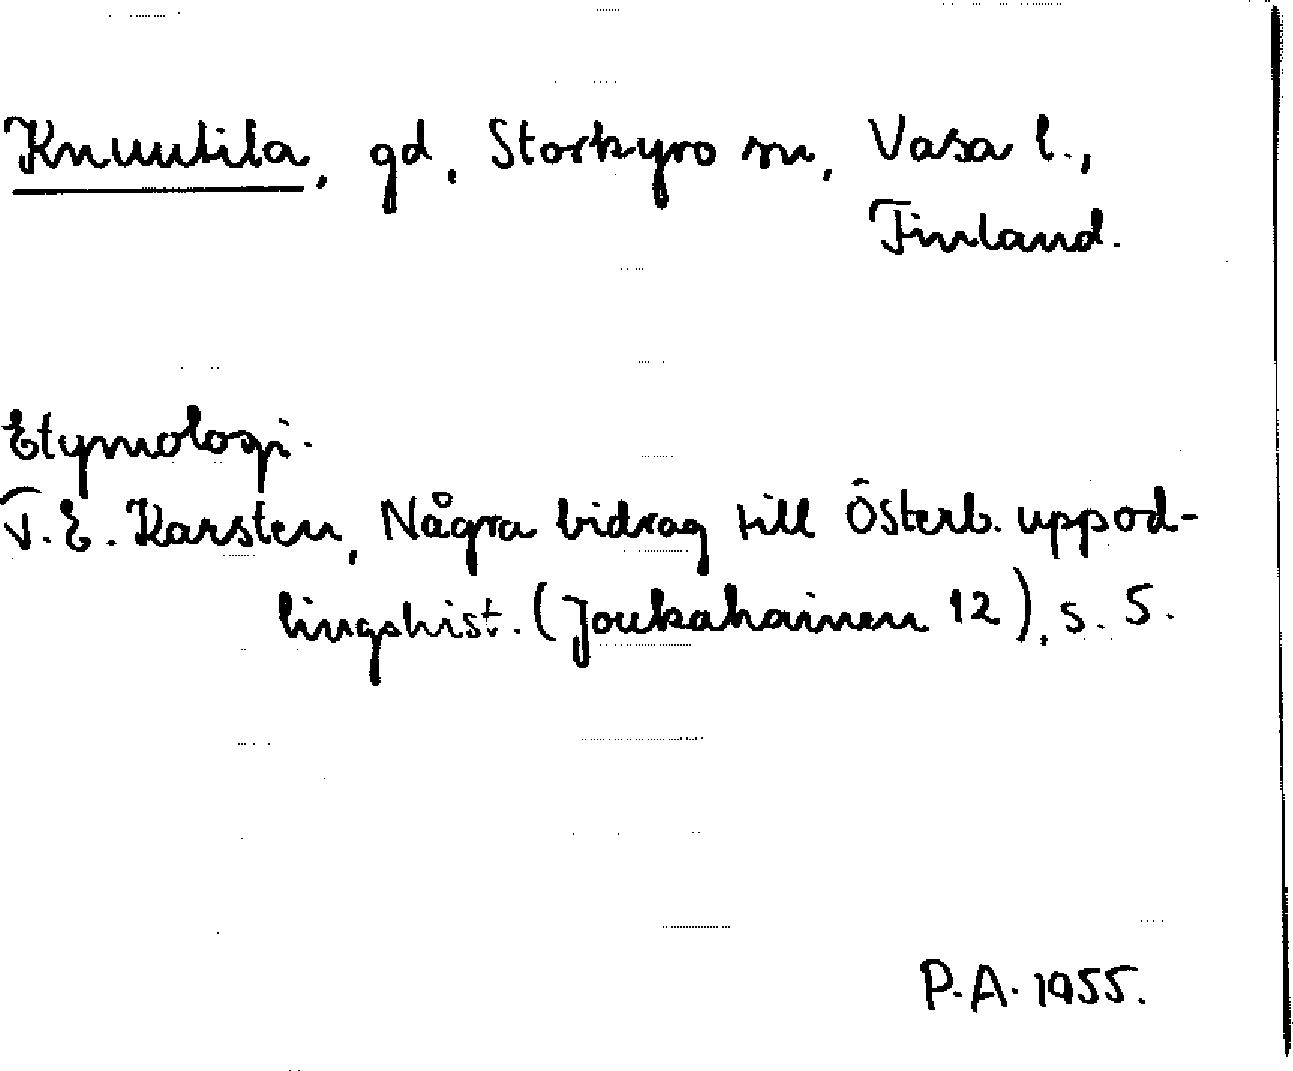 Knuutila, gd, Storkyro sn, Vasa l.,
Finland.
Etymologi.
T. E. Karsten, Några bidrag till Österb. uppod-
lingshist. (Joukahainen 12), s. 5.
P.A. 1955.